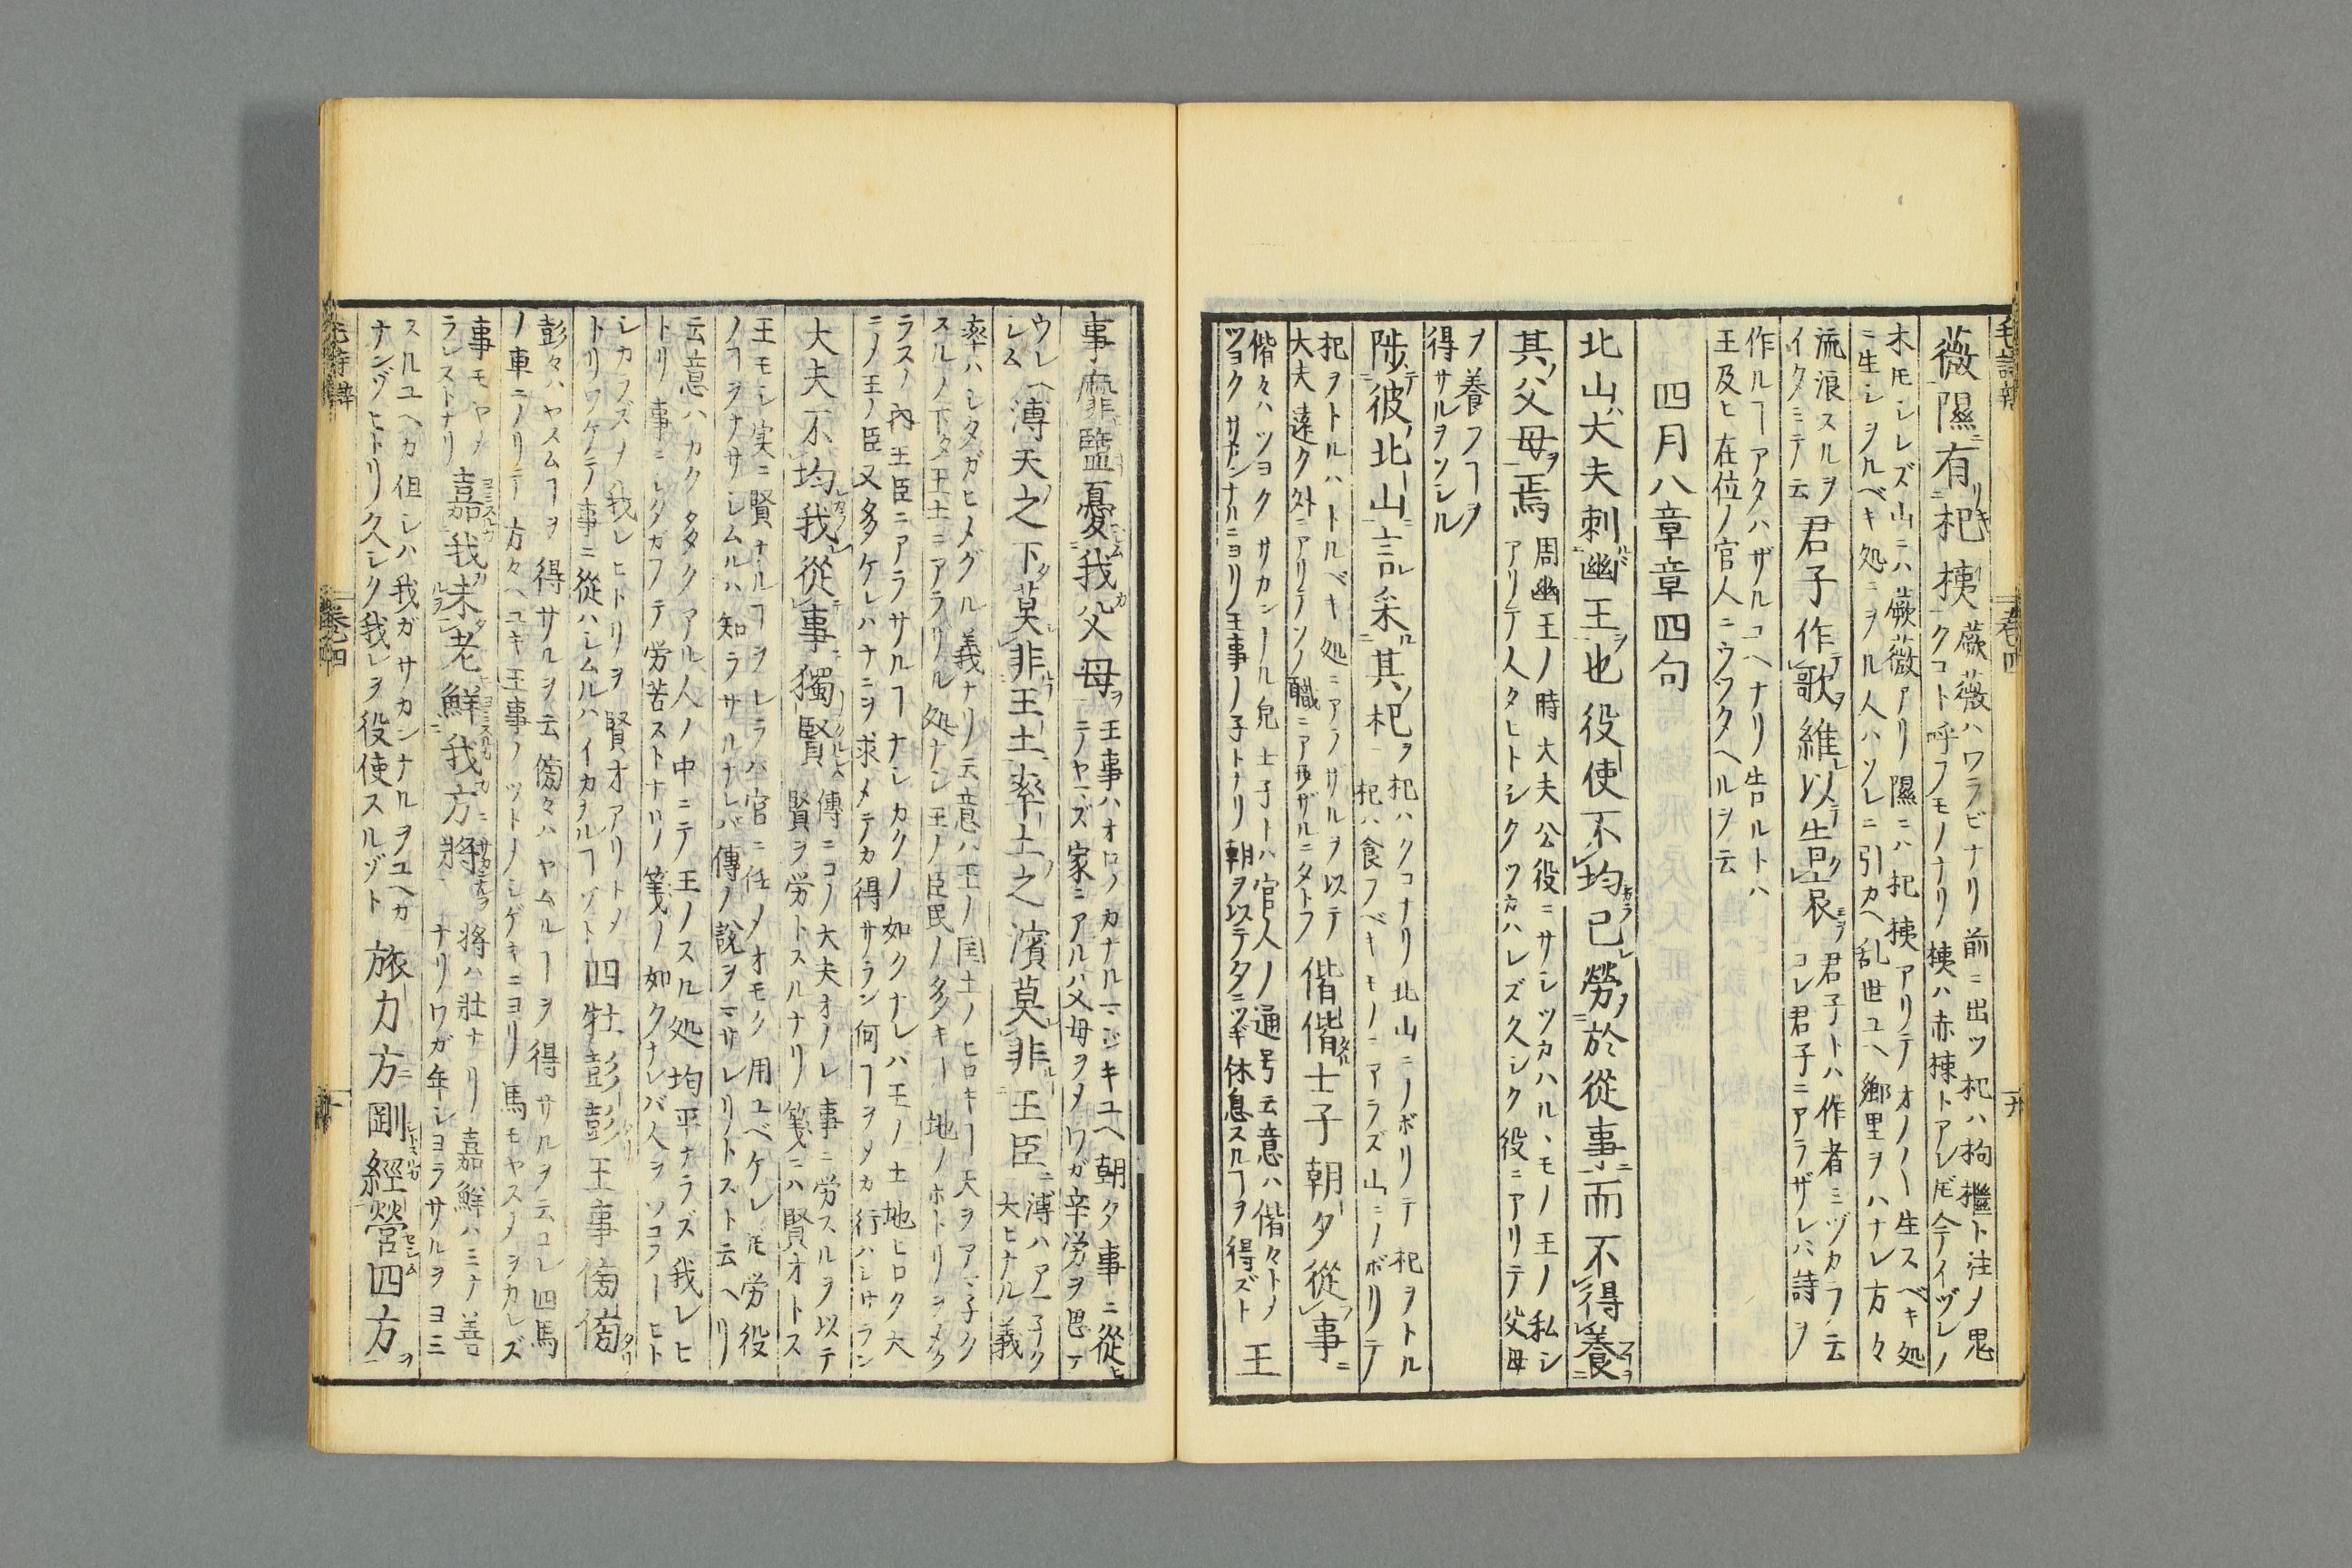 毛詩辨 卷四
薇隰有杞桋 蕨薇ハワラビナリ前ニ出ツ杞ハ拘檵ト注ノ思
クコト呼フモノナリ桋ハ赤棟トアレ𪜈今イヅレノ
木𪜈シレズ山ニハ蕨薇アリ隰ニハ杞桋アリテオノ〳〵生スベキ処
ニ生シヲルベキ処ニヲル人ハソレニ引カヘ乱世ユヘ郷里ヲハナレ方々
流浪スルヲ
イタミテ云 君子作歌維以告哀 君子トハ作者ミヅカラ云
コレ君子ニアラザレバ詩ヲ
作ルヿアタハザルユヘナリ告ルトハ
王及ヒ在位ノ官人ニウツタヘルヲ云
四月八章章四句
北山大夫刺幽王也役使不均已勞於從事而不得養
其父母焉 周幽王ノ時大夫公役ニサシツカハル丶モノ王ノ私シ
アリテ人タヒトシクツカハレズ久シク役ニアリテ父母
ヲ養フヿヲ
得サルヲソシル
陟彼北山言采其杞 杞ハクコナリ北山ニノボリテ杞ヲトル
杞ハ食フベキモノニアラズ山ニノボリテ
杞ヲトルハトルベキ処ニアラサルヲ以テ
大夫遠ク外ニアリテソノ職ニアラザルニタトフ 偕偕士子朝夕從事
偕々ハツヨクサカンナル皃士子トハ官人ノ通号云意ハ偕々トメ
ツヨクサカンナルニヨリ王事ノ子トナリ朝ヲ以テタニツギ休息スルヿヲ得ズト 王
事靡盬憂我父母 王事ハオロソカナルマジキユヘ朝夕事ニ從ヒ
ニノヤマズ家ニアル父母ヲメワガ辛労ヲ思テ
ウレヘ
シム 溥天之下莫非王土率土之濱莫非王臣 溥ハアマネク
大ヒナル義
率ハシタガヒメグル義ナリ云意ハ王ノ国土ノヒロキヿ天ヲアマネク
スルノ下タ王土ニアラザル処ナシ王ノ臣民ノ多キヿ地ノホトリヲメク
ラスノ内王臣ニアラサルヿナシカクノ如クナレハ王ノ土地ヒロク大
ニノ王ノ臣又多ケレハナニヲ求メテカ得サラン何ヿヲメカ行ハシサラン
大夫不均我從事獨賢 傳ニコノ大夫オノレ事ニ労スルヲ以テ
賢ヲ労トスルナリ箋ニハ賢オトス
王モシ実ニ賢ナルヿヲシラバ官ニ任メオモク用ユベケレ𪜈労役
ノヿヲナサシムルハ知ラサルナレバ傳ノ説ヲマサレリトスト云ヘリ
云意ハカクタクアル人ノ中ニテ王ノスル処均平ナラズ我レヒ
トリ事ニシタガフテ労苦ストナリ箋ノ如クナレバ人ヲソコフーヒト
シカラズメ我レヒトリヲ賢オアリトメ
トリワケテ事ニ從ハシムルハイカヲルヿゾト 四牡彭彭王事傍傍
彭々ハヤスムヿヲ得サルヲ云傍々ハヤムルヿヲ得サルヲ云ユレ四馬
ノ車ニノリテ方々ヘユキ王事ノツトノシゲキニヨリ馬モヤスメヲカレズ
事モヤメ
ラレストナリ 嘉我未老鮮我方將 將ハ壮ナリ嘉鮮ハミナ善
ナリワガ年シヨラサルヲヨミ
スルユヘカ但シハ我ガサカンナルヲユヘカ
ナンゾヒトリ久シク我レヲ役使スルゾト 旅力方剛經營四方
毛詩辨 卷四